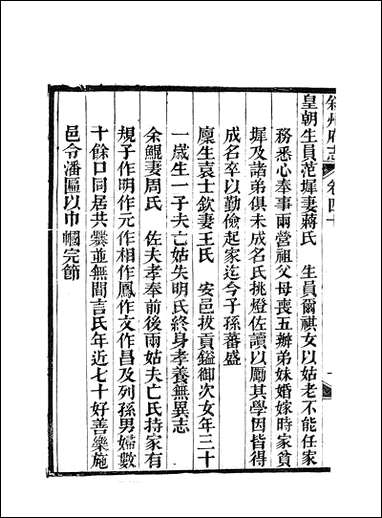 叙州府志 卷四十
皇朝生員范墀妻蔣氏 生員爾祺女以姑老不能任家
務悉心奉事兩營祖父母喪五辦弟妹婚嫁時家貧
墀及諸弟俱未成名氏挑燈佐讀以勵其學因皆得
成名卒以勤儉起家迄今子孫蕃盛
廩生袁士欽妻王氏 安邑拔貢鎰御次女年三十
一歲生一子夫亡姑失明氏終身孝養無異志
余鯤妻周氏 佐夫孝奉前後兩姑夫亡氏持家有
規子作明作元作相作鳳作文作昌及列孫男婦數
十餘口同居共爨並無間言氏年近七十好善樂施
邑令潘區以巾幗完節